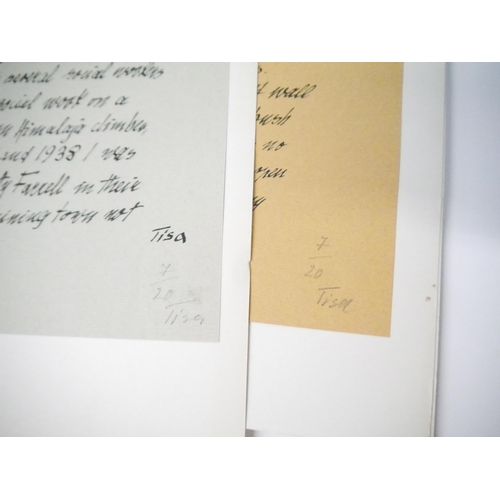 several social workers
social work on a
Himalaja climber,
and 1938 I was
Farrell in their
mining town not
Tisa
7
20
Tisa
wall
no
open
7
20
Tisa